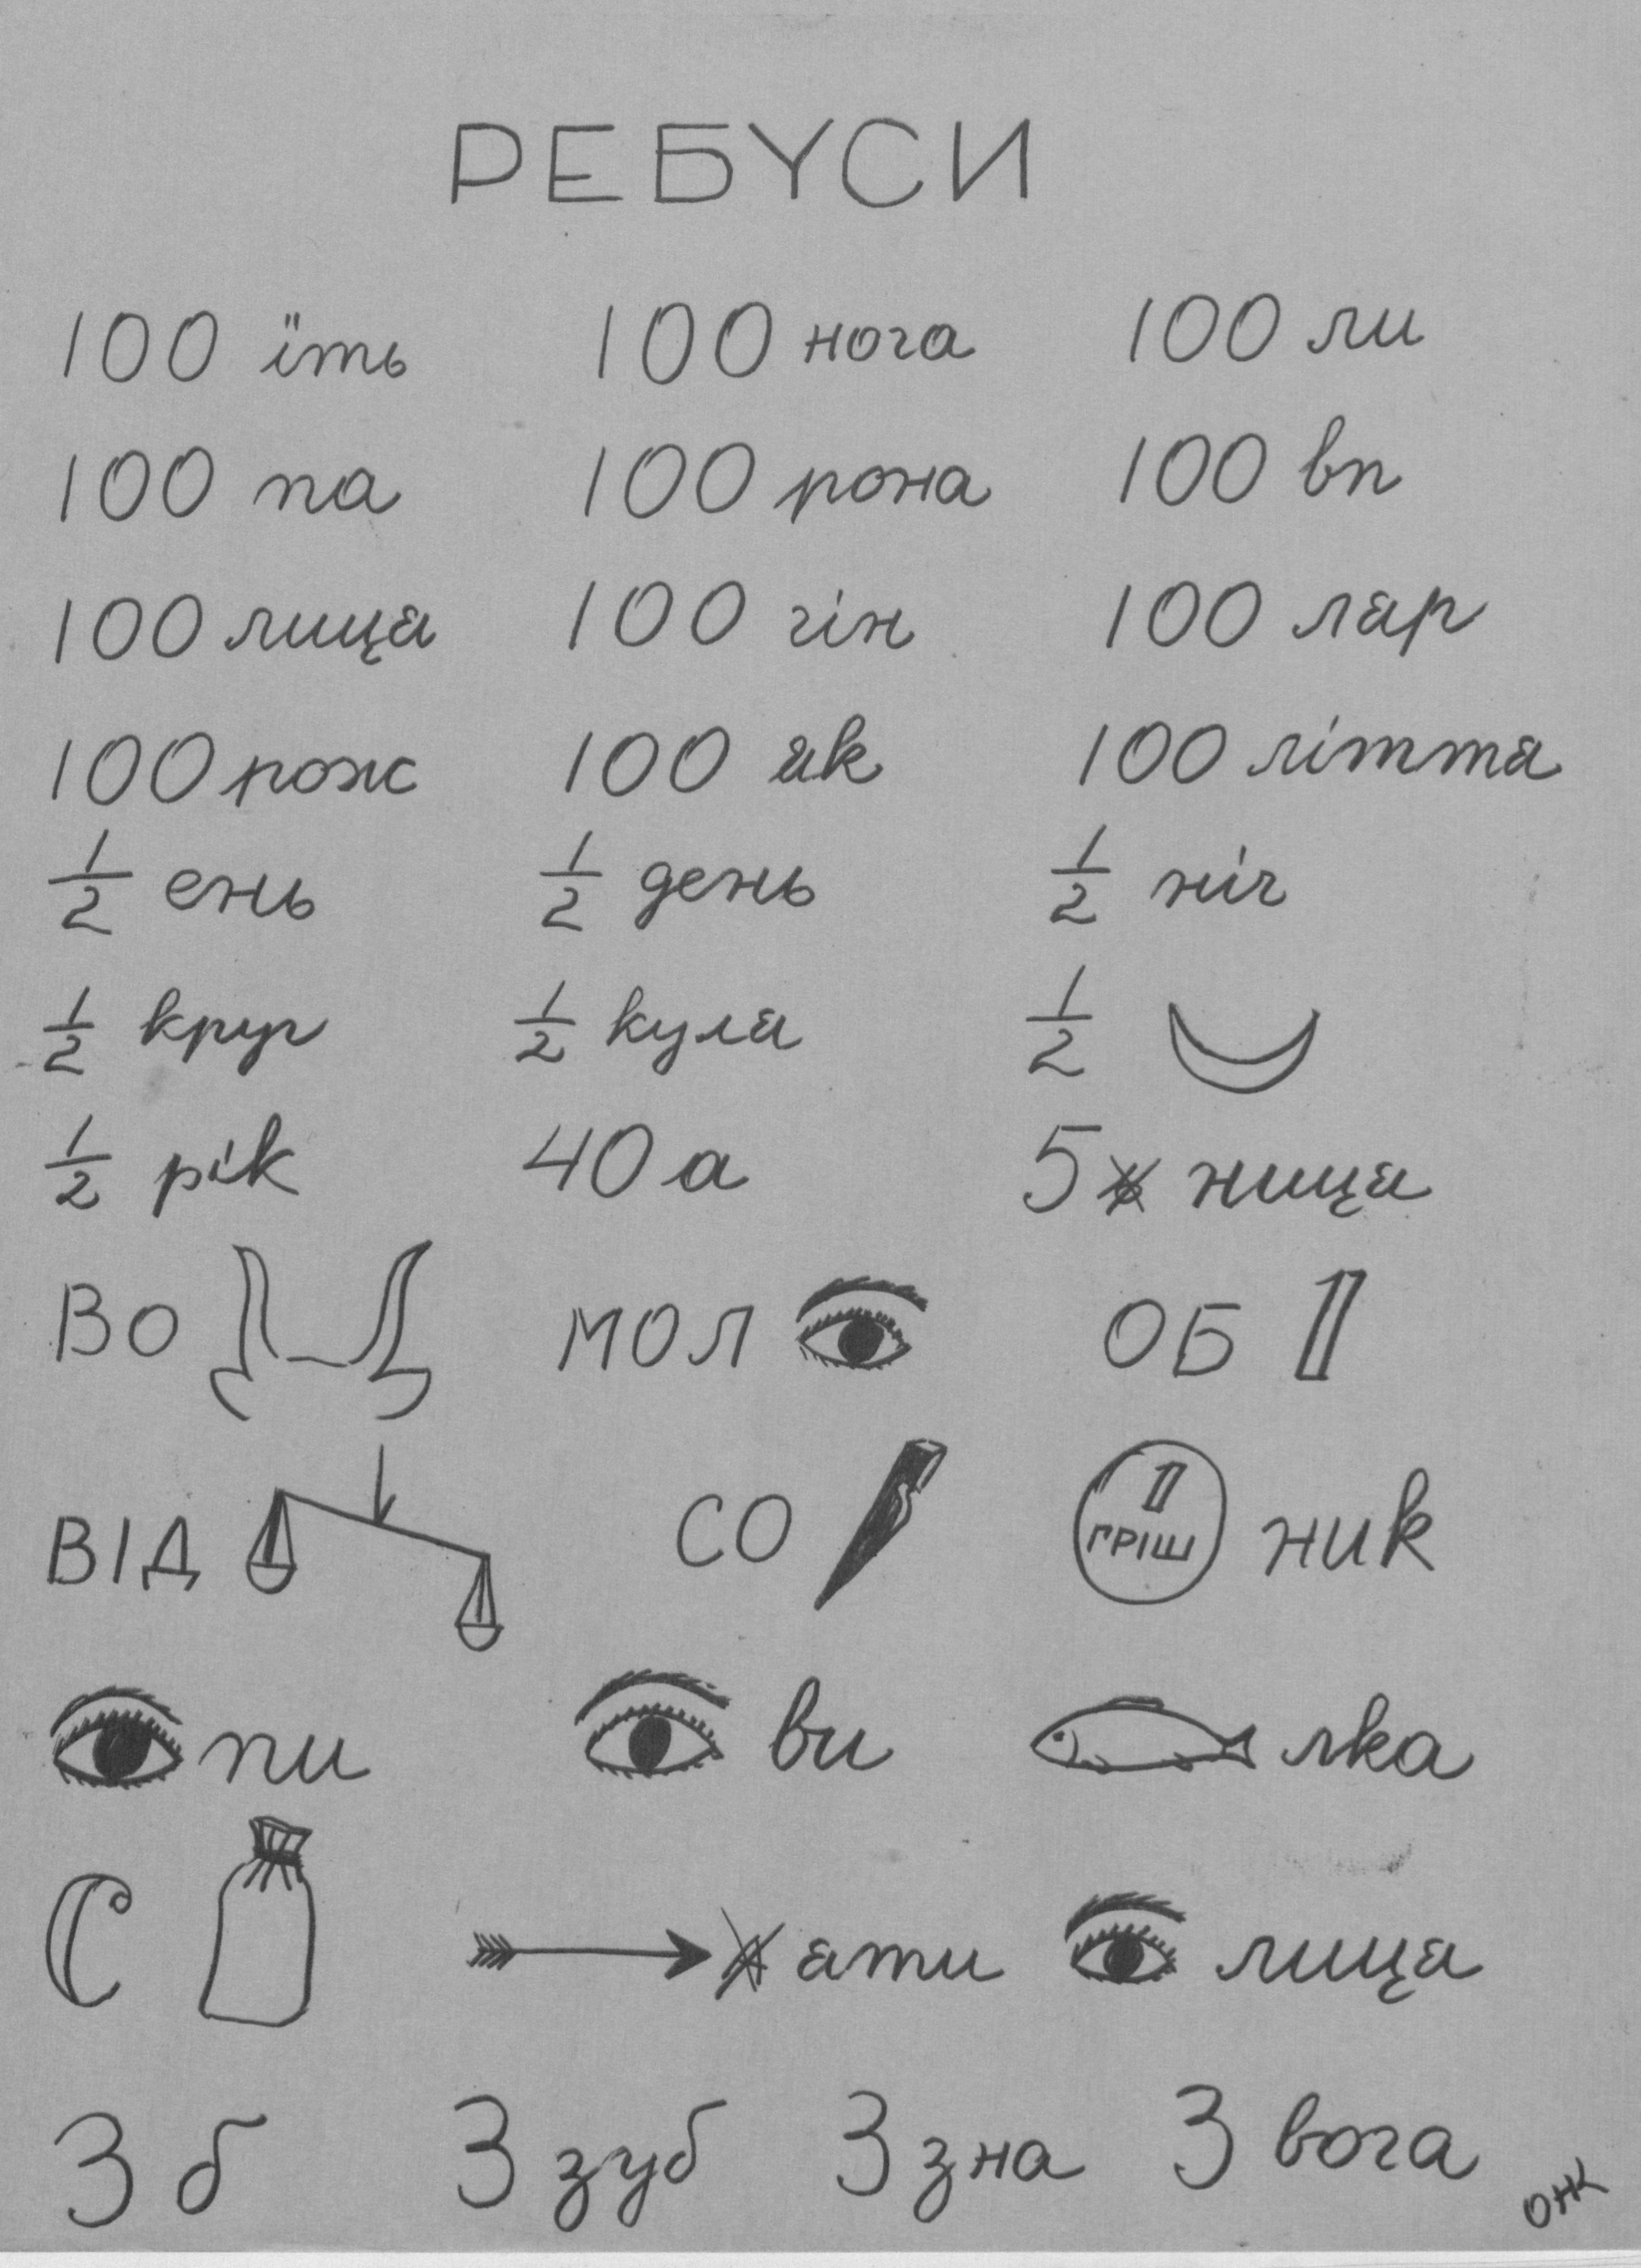 РЕБУСИ
100 їть 100 нога 100 ли
100 па 100 рона 100 вп
100 лиця 100 гін 100 ляр
100 рож 100 як 100 ліття
1/2 ень 1/2 день 1/2 ніч
1/2 круг 1/2 куля 1/2
1/2 рік 40 а 5 ниця
ВО МОЛ ОБ 1
ВІД СО 1 ГРІШ ник
пи ви лка
С ати лиця
3 б 3 зуб 3 зна 3 вога
ОНК